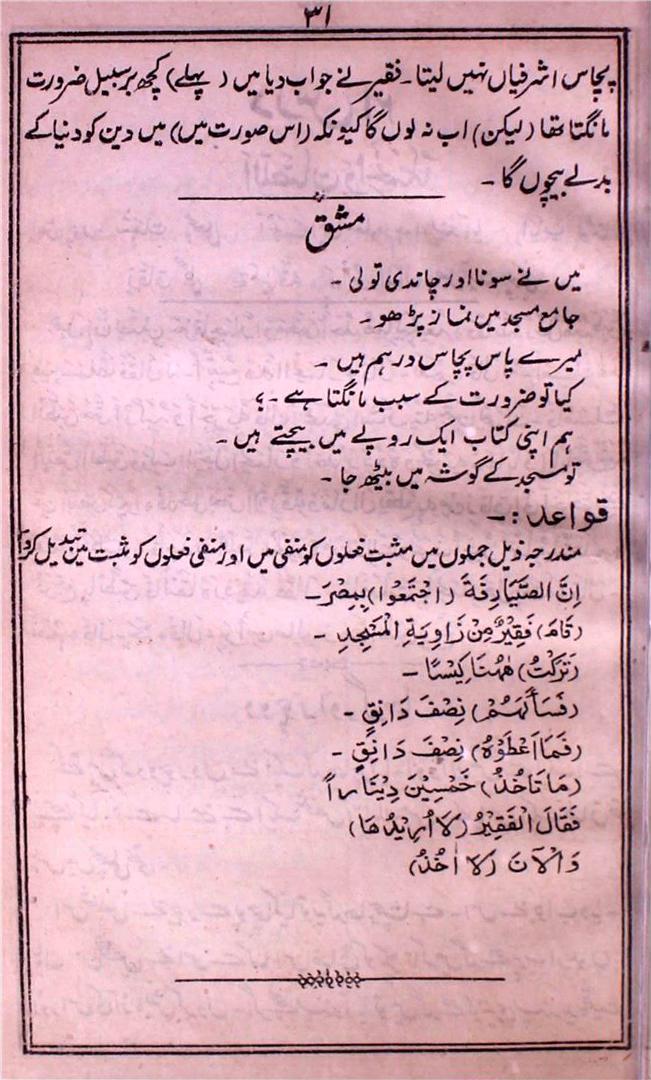 ۳۱
پچاس اشرفیاں نہیں لیتا۔ فقیر نے جواب دیا میں (پہلے) کچھ بر سبیل ضرورت
مانگتا تھا (لیکن) اب نہ لوں گا کیونکہ (اس صورت میں) میں دین کو دنیا کے
بدلے بیچوں گا۔
مشق
میں نے سونا اور چاندی تولی۔
جامع مسجد میں نماز پڑھو۔
میرے پاس پچاس درہم ہیں۔
کیا تو ضرورت کے سبب مانگتا ہے۔؟
ہم اپنی کتاب ایک روپے میں بیچتے ہیں۔
تو مسجد کے گوشہ میں بیٹھ جا۔
قواعد:۔
مندرجہ ذیل جملوں میں مثبت فعلوں کو منفی میں اور منفی فعلوں کو مثبت میں تبدیل کرو
اِنَّ الصَّیَارِفَةَ (اجْتَمَعُوْا) بِمِصْرَ۔
(قَامَ) فَقِیْرٌ مِنْ زَاوِیَةِ الْمَسْجِدِ۔
(تَرَکْتُ) هٰهُنَا کِیْسًا۔
(فَسَأَلَهُمْ) نِصْفَ دَانِقٍ۔
(فَمَا اَعْطَوْهُ) نِصْفَ دَانِقٍ۔
(مَا تَاخُذُ) خَمْسِیْنَ دِیْنَاراً
فَقَالَ الْفَقِیْرُ (لَا اُرِیْدُهَا)
وَالْاٰنَ (لَا اٰخُذُ)